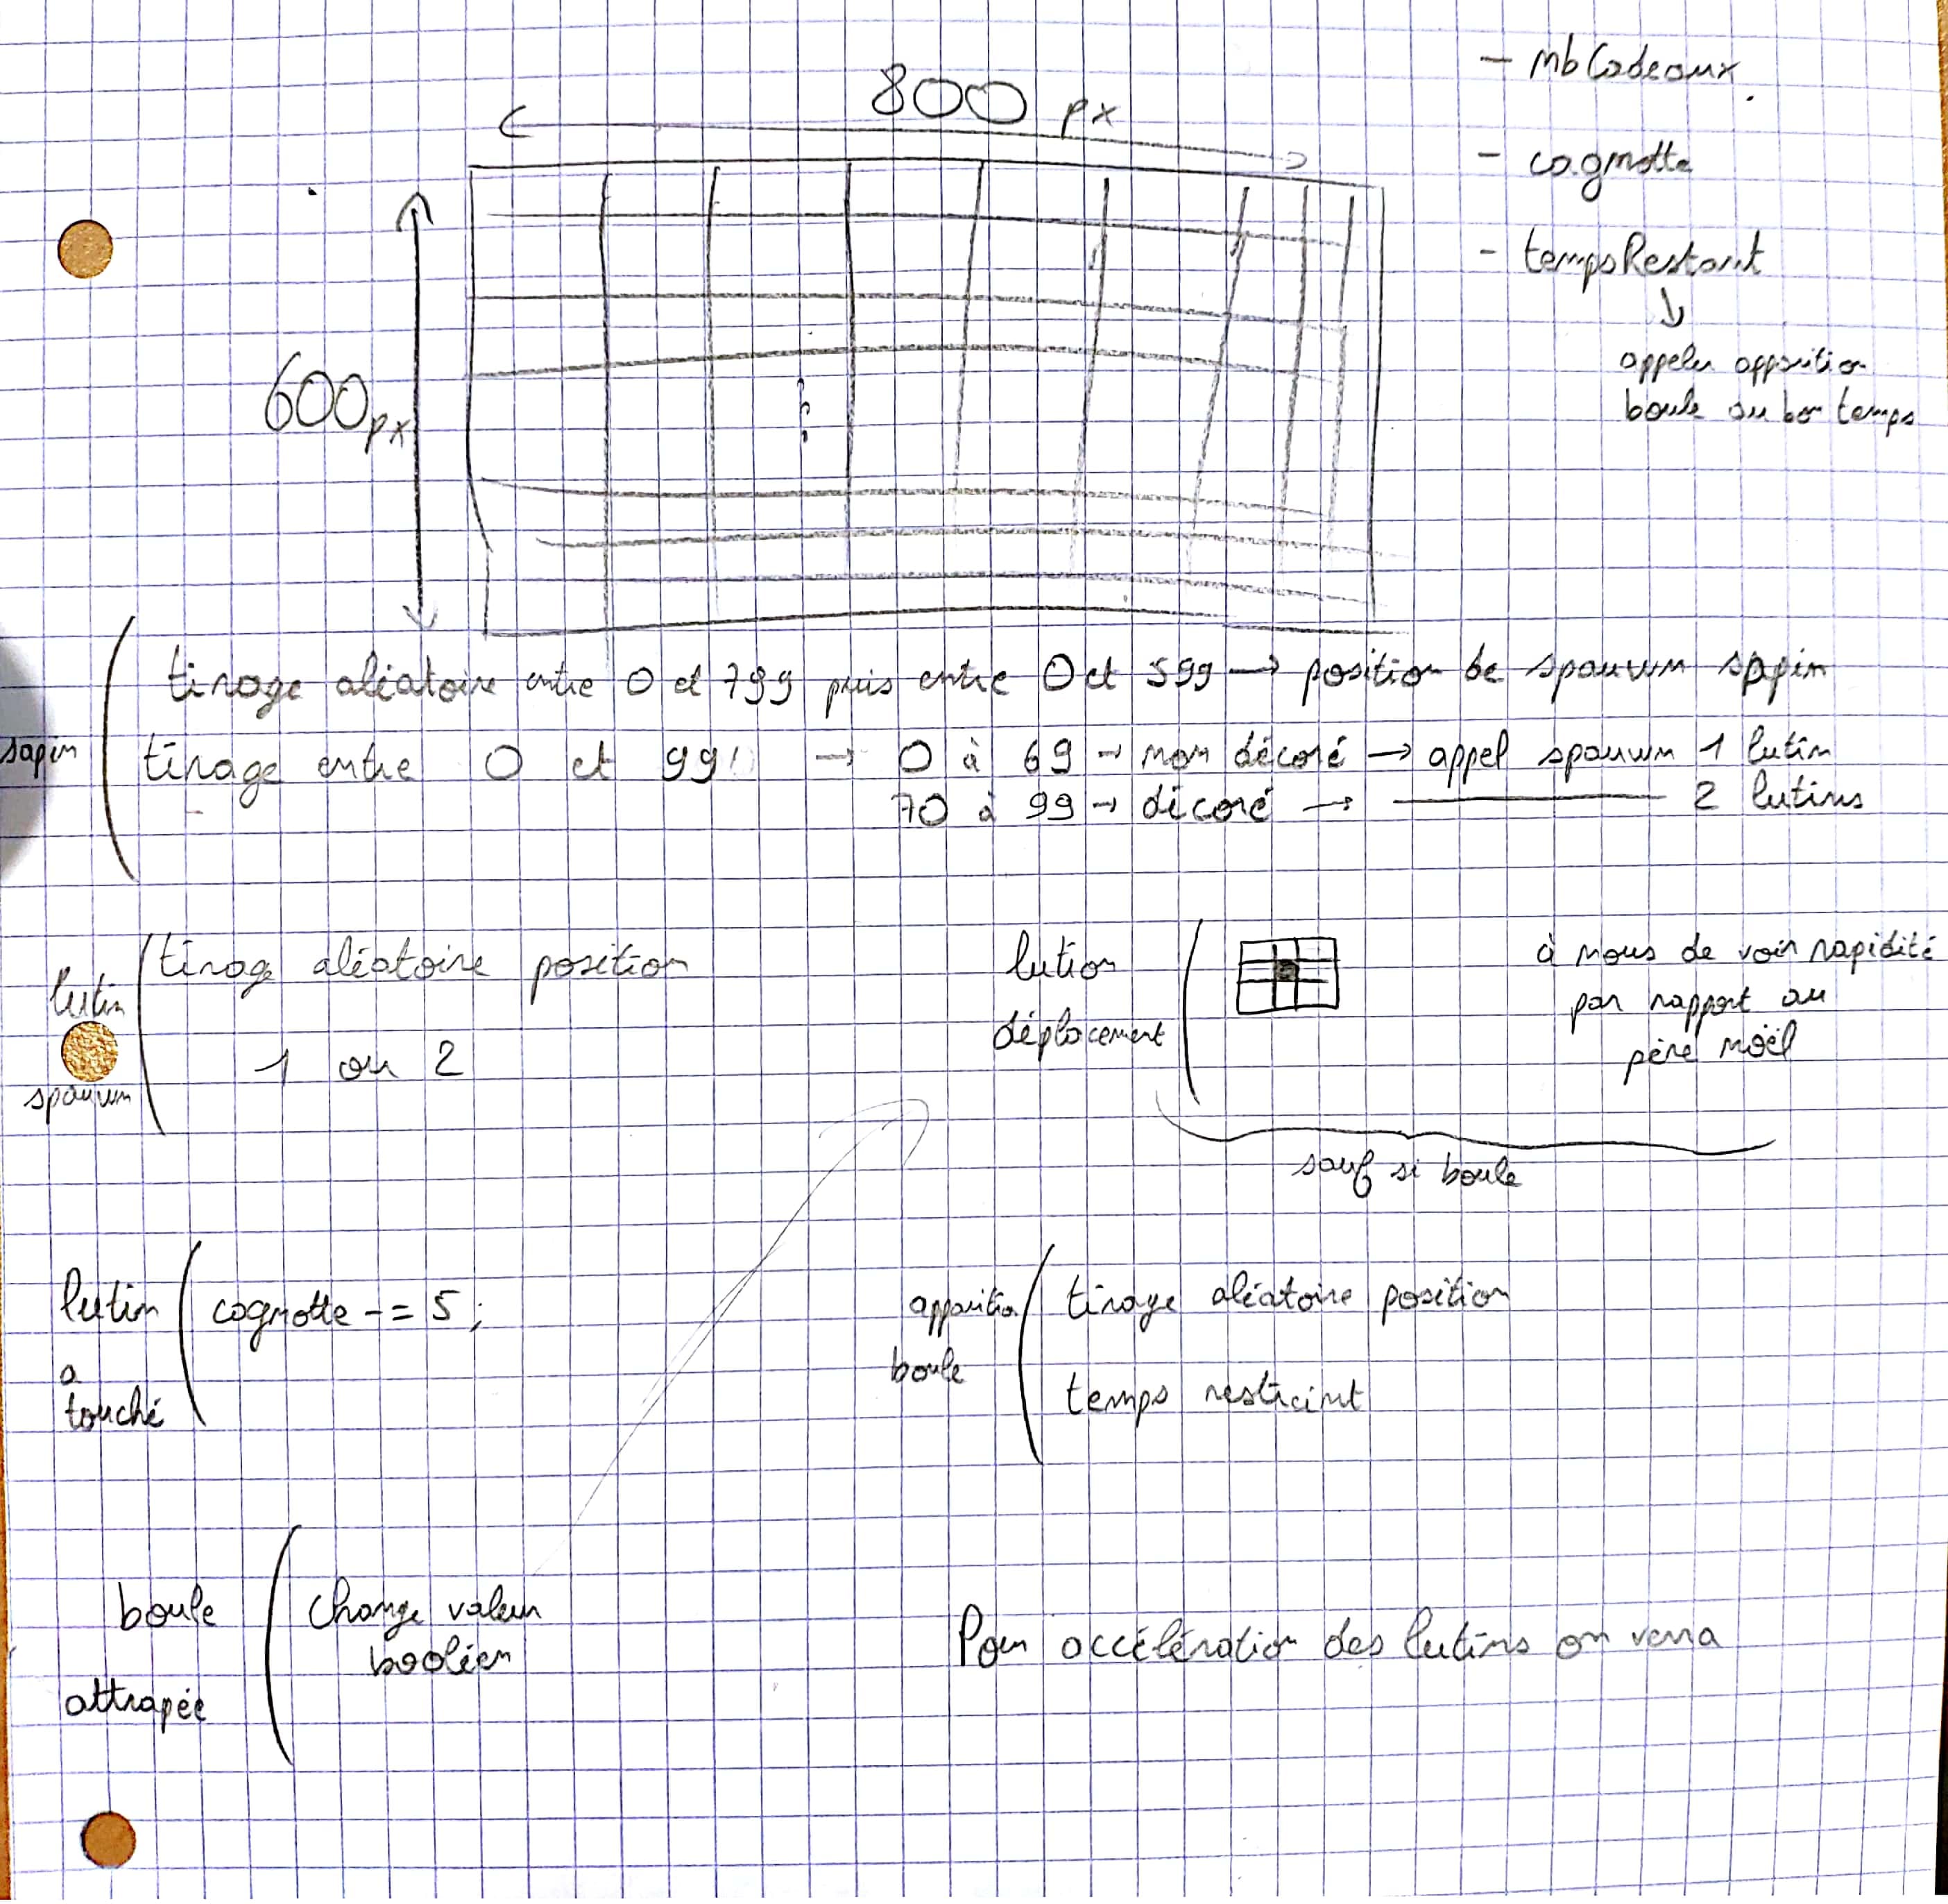 800 px
- nbCadeaux
- cagnotte
- tempsRestant
↓
appeler apparition
boule au bon temps
600px
sapin
tirage aléatoire entre 0 et 799 puis entre 0 et 599 → position de spawn sapin
tirage entre 0 et 99 → 0 à 69 → non décoré → appel spawn 1 lutin
70 à 99 → décoré → ———— 2 lutins
lutin
spawn
tirage aléatoire position
1 ou 2
lution
déplacement
à nous de voir rapidité
par rapport au
père noël
sauf si boule
lutin
a
touché
cagnotte -= 5;
apparitio
boule
tirage aléatoire position
temps restreint
boule
attrapée
change valeur
booléen
Pour accélération des lutins on verra